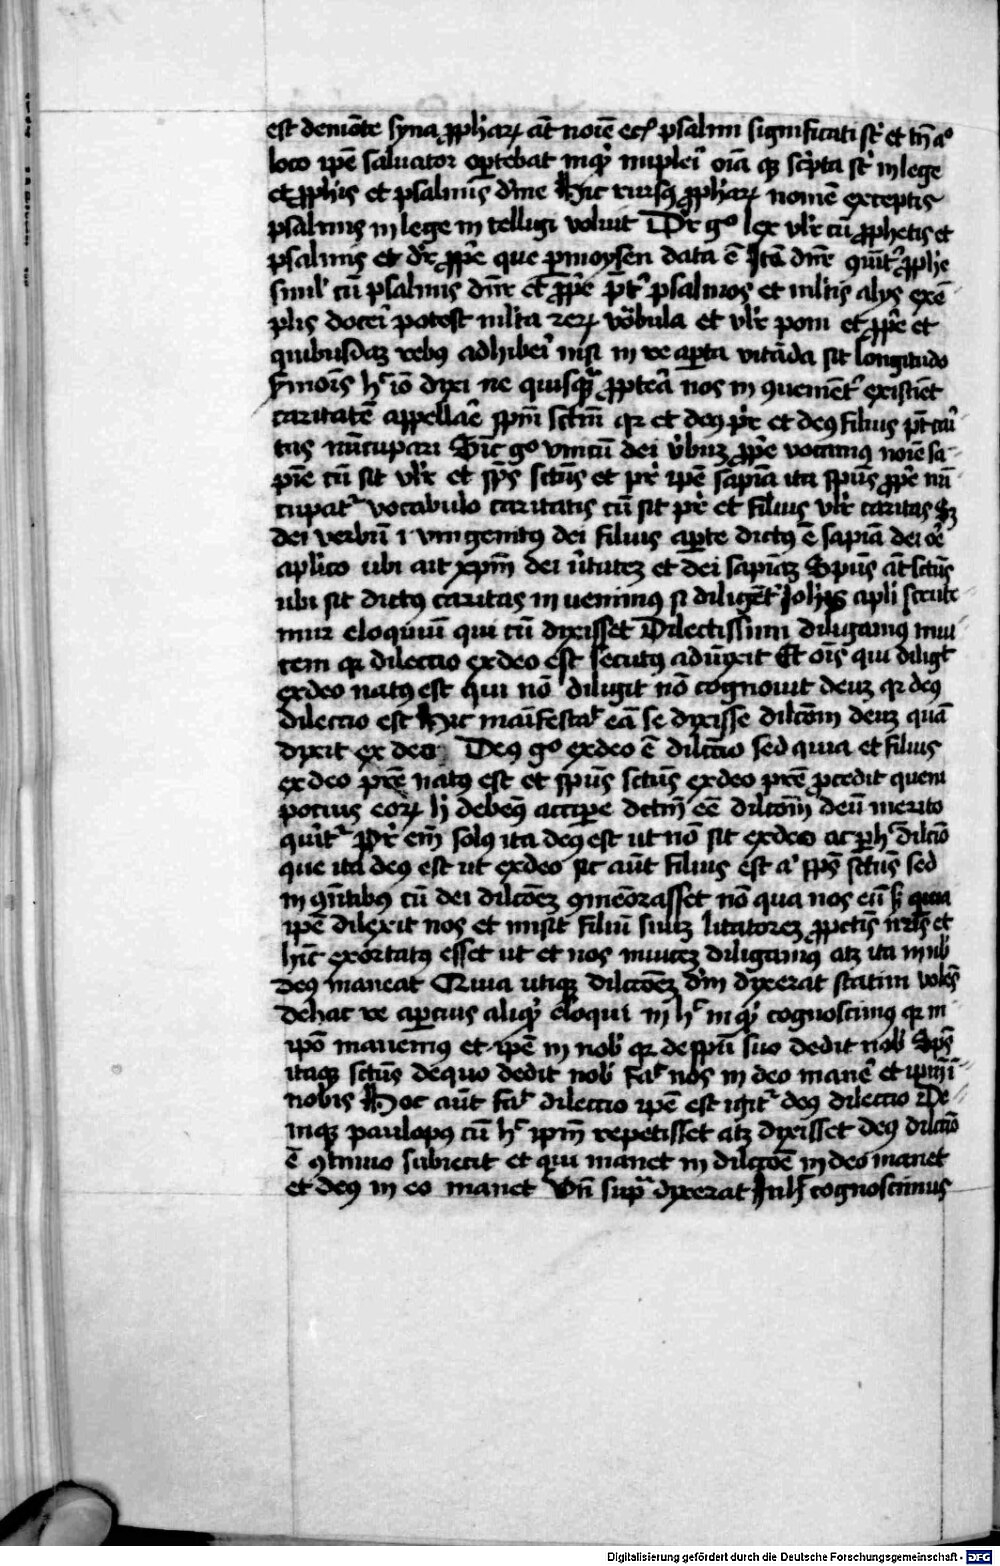 est demo͂te syna ꝓphaꝝ at̄ noīe ecī psalmi significati st̄ et tn̄ aº
loco ip̄e saluator oꝑtebat inqͥt impleri oīa que scͥpta st̄ in lege
et ꝓphīs et psalmis d̄me Hic rursꝰ ꝓphaꝝ nomē exceptis
psalmis in lege in telligi voluit Dr̄ gº lex vlr̄ cū ꝓphetis et
psalmis et dr̄ ꝓpͥe que ꝑmoysen data ē Itē dn̄r ꝯmūit̄ ꝓphē
simul cū psalmis dn̄r et ꝓpͥe p̄t psalmos et ml̄tis alijs exē
plis doceri potest ml̄ta reꝝ vōbula et vlr̄ poni et ꝓpͥe et
quibusdaꝫ rebꝰ adhiberi nisi in re aꝑta vitāda sit longitudo
ẜmonis hͨ iō dixi ne quisqᷓ ꝓpt̄ea nos in ꝯueniēt̄ existīet
caritatē appellar̄e spm̄ sctm̄ qr et deꝰ pr̄ et deꝰ filius pt̄ cari
tas nūcupari Sic̄ gº vnicū dei v̄buꝫ ꝓpͥe vocamꝰ noīe sa-
pīe cū sit vlr̄ et sp̄s sctūs et pr̄ ip̄e sapīa ita spūs ꝓpͥe nū
cupat̄ vocabulo caritatis cū sit pr̄ et filius vlr̄ caritas Sꝫ
dei verbū i vnigenitꝰ dei filius aꝑte dictꝰ ē sapīa dei ore
aplīco ubi ait xpm̄ dei v̄tuteꝫ et dei sapīaꝫ Spūs at̄ sctūs
ubi sit dictus caritas in uenimꝰ si diligēt̄ Joh̄is apli scrute-
mur eloquiū qui cū dixisset Dilectissimi diligamꝰ inui
cem qr dilectio ex deo est secutꝰ adiūxit Et oīs qui diligit
ex deo natꝰ est qui nō diligit nō cognouit deuꝫ qr deꝰ
dilectio est Hic māifestat̄ eā se dixisse dilc̄om deuꝫ quā
dixit ex deo Deꝰ gº ex deo ē dilc̄tio sed quia et filius
ex deo pr̄e natꝰ est et spūs sctūs ex deo pr̄e ꝓcedit quem
potius eoꝝ hī debeꝰ acciꝑe dctm̄ eē dilc̄om deū merito
querit̄ Pr̄ em̄ solꝰ ita deꝰ est ut nō sit ex deo ac ꝑ hͨ dilc̄io
que ita deꝰ est ut ex deo sit aūt filius est aͧ sp̄s sctūs sed
in ꝯn̄tibus cū dei dilc̄oeꝫ ꝯmēorasset nō qua nos eū sꝫ quia
ip̄e dilexit nos et misit filiū suuꝫ litatoreꝫ ꝓ pctīs nr̄is et
hīc exortatꝰ esset ut et nos inuiceꝫ diligamꝰ atꝫ ita in nob̄
deꝰ maneat Quia utiqꝫ dilc̄oeꝫ dm̄ dixerat statim volēs
de hac re aꝑcius aliqͥd eloqui in hͨ inqͥt cognoscimus qr in
ipō manemus et ip̄e in nob̄ qr de spū suo dedit nob̄ Sp̄s
itaqꝫ sctūs de quo dedit nob̄ fac̄ nos in deo maner̄e et ip̄m ī
nobis Hoc aūt fac̄ dilectio ip̄e est igit̄ deꝰ dilectio De-
niqꝫ paulopꝰ cū hͨ ip̄m repetisset atꝫ dixisset deꝰ dilc̄tio
ē ꝯtinuo subiecit et qui manet in dilc̄oe in deo manet
et deꝰ in eo manet Vn̄ supᷓ dixerat In hͨ cognoscimus
Digitalisierung gefördert durch die Deutsche Forschungsgemeinschaft - DFG